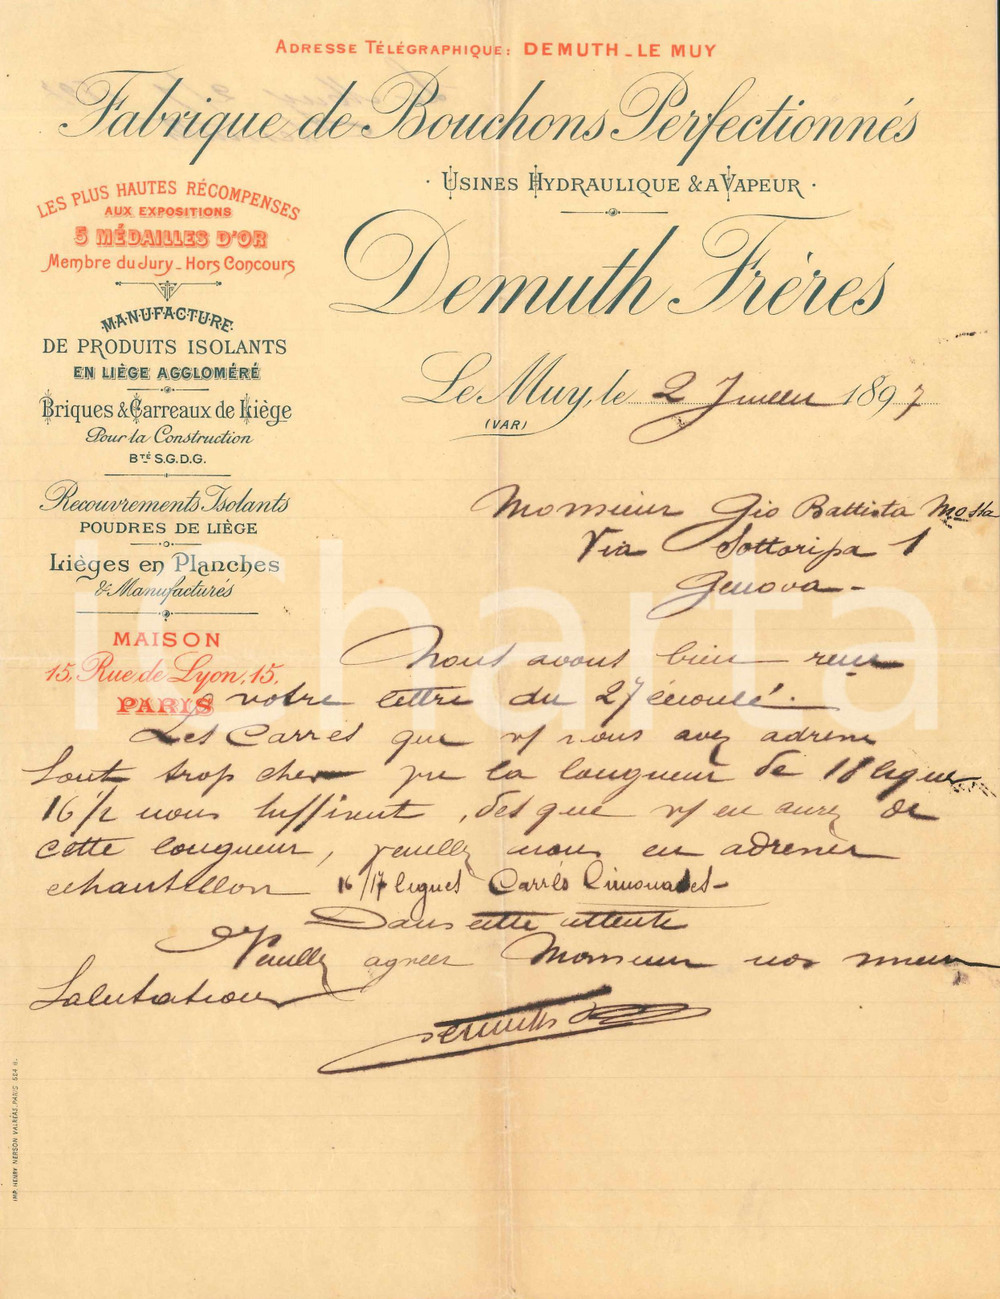 ADRESSE TÉLÉGRAPHIQUE: DEMUTH_LE MUY
Fabrique de Bouchons Perfectionnés
· USINES HYDRAULIQUE & A VAPEUR ·
Demuth Frères
Le Muy, le 2 Juillet 1897
(VAR)
LES PLUS HAUTES RÉCOMPENSES
AUX EXPOSITIONS
5 MÉDAILLES D'OR
Membre du Jury_Hors Concours
MANUFACTURE
DE PRODUITS ISOLANTS
EN LIÈGE AGGLOMÉRÉ
Briques & Carreaux de Liège
Pour la Construction
BTÉ S.G.D.G.
Recouvrements Isolants
POUDRES DE LIÈGE
Lièges en Planches
& Manufacturés
MAISON
15, Rue de Lyon, 15,
PARIS
Monsieur Gio Battista Mossa
Via Sottoripa 1
Genova -
Nous avons bien reçu
votre lettre du 27 écoulé.
Les Carrés que vs nous avez adressé
sont trop cher pr la longueur de 18 lignes
16 1/2 nous suffisent, dès que vs en aurez de
cette longueur, veuillez nous en adresser
echantillon 16/17 lignes Carrés Limonades -
Dans cette attente
Veuillez agréer Monsieur nos
Salutations
Demuth
IMP. HENRY NERSON VALRÉAS, PARIS
iCharta